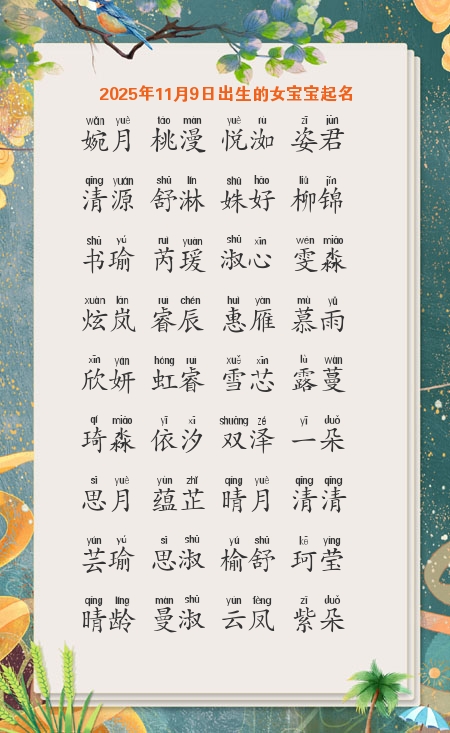 2025年11月9日出生的女宝宝起名
wǎn yuè táo màn yuè rù zī jūn
婉月 桃漫 悦洳 姿君
qīng yuán shū lín shū hǎo liǔ jǐn
清源 舒淋 姝好 柳锦
shū yú ruì yuàn shū xīn wén miǎo
书瑜 芮瑗 淑心 雯淼
xuàn lán ruì chén huì yàn mù yǔ
炫岚 睿辰 惠雁 慕雨
xīn yán hóng ruì xuě xīn lù wàn
欣妍 虹睿 雪芯 露蔓
qí miǎo yī xī shuāng zé yī duǒ
琦淼 依汐 双泽 一朵
sī yuè yùn zhǐ qíng yuè qīng qīng
思月 蕴芷 晴月 清清
yún yú sī shū yú shū kē yíng
芸瑜 思淑 榆舒 珂莹
qíng líng màn shū yún fèng zǐ duǒ
晴龄 曼淑 云凤 紫朵